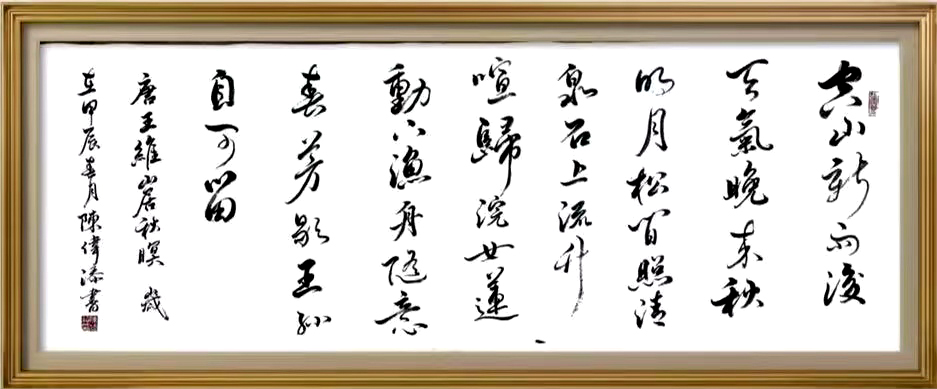 空山新雨後
天氣晚来秋
明月松间照清
泉石上流竹
喧歸浣女蓮
動下漁舟隨意
春芳歇王孫
自可留
唐王維山居秋暝 歲
在甲辰春月陳偉添書